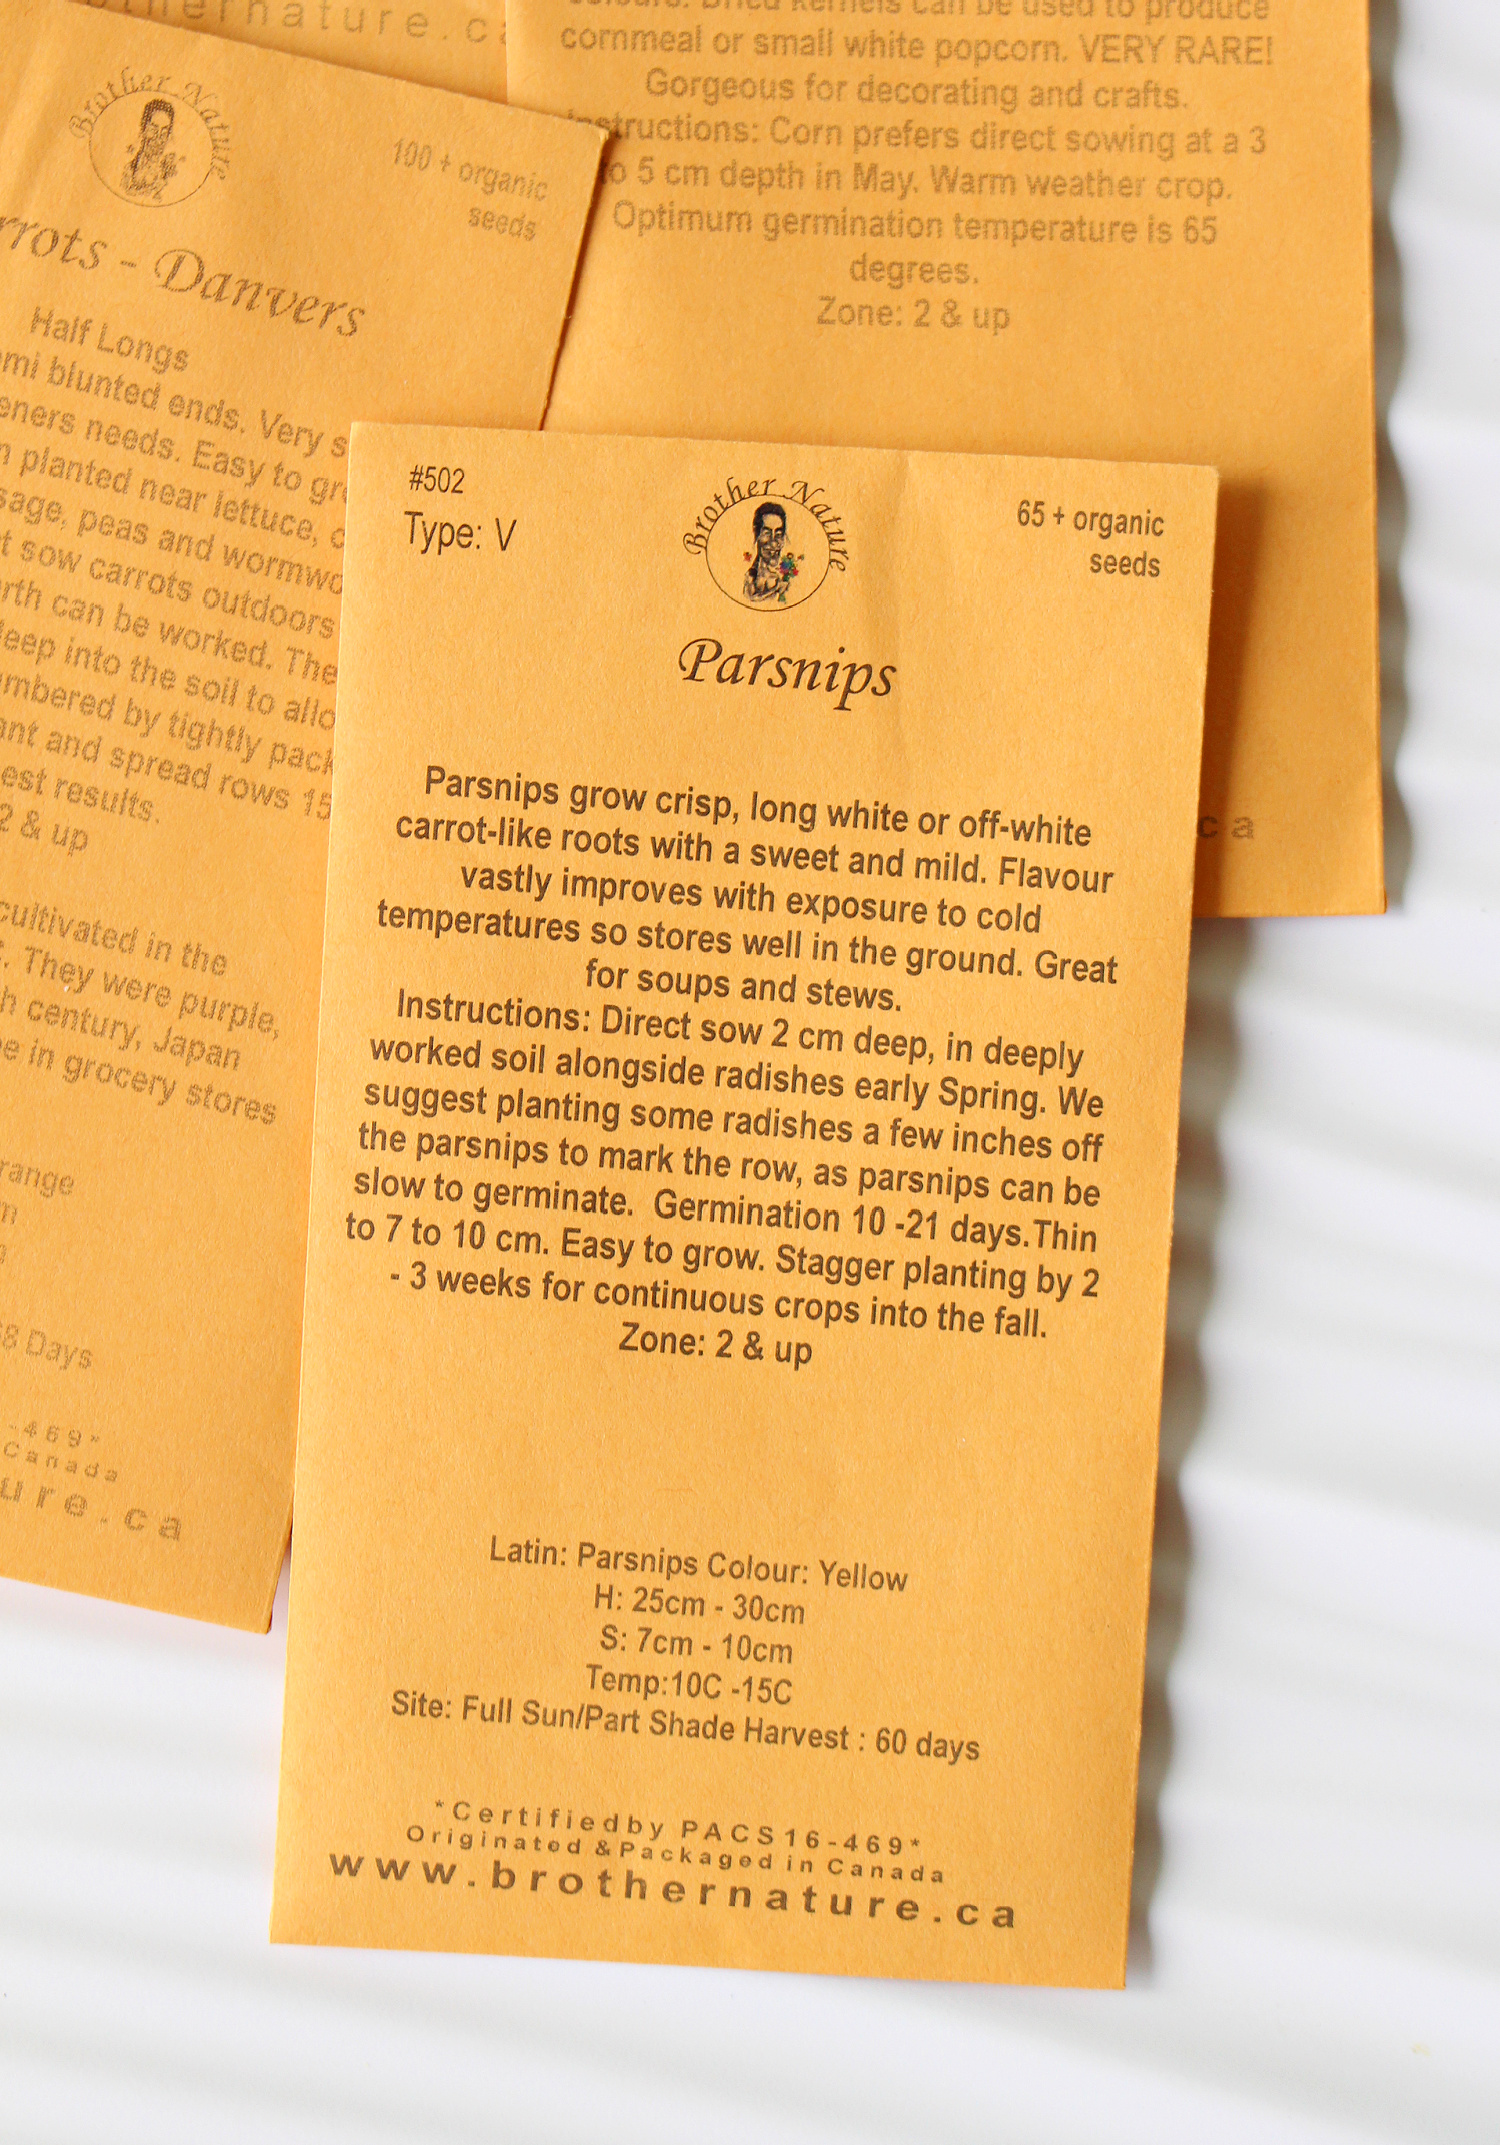 thernature.c
Brother Nature
100 + organic
seeds
rrots - Danvers
Half Longs
mi blunted ends. Very s
eners needs. Easy to gr
n planted near lettuce, c
sage, peas and wormwo
t sow carrots outdoors
rth can be worked. The
deep into the soil to allo
mbered by tightly pack
ant and spread rows 15
est results.
2 & up
cultivated in the
. They were purple,
h century, Japan
e in grocery stores
range
8 Days
-469*
Canada
ure.ca
colours. Dried kernels can be used to produce
cornmeal or small white popcorn. VERY RARE!
Gorgeous for decorating and crafts.
Instructions: Corn prefers direct sowing at a 3
to 5 cm depth in May. Warm weather crop.
Optimum germination temperature is 65
degrees.
Zone: 2 & up
ca
#502
Type: V
Brother Nature
65 + organic
seeds
Parsnips
Parsnips grow crisp, long white or off-white
carrot-like roots with a sweet and mild. Flavour
vastly improves with exposure to cold
temperatures so stores well in the ground. Great
for soups and stews.
Instructions: Direct sow 2 cm deep, in deeply
worked soil alongside radishes early Spring. We
suggest planting some radishes a few inches off
the parsnips to mark the row, as parsnips can be
slow to germinate.  Germination 10 -21 days.Thin
to 7 to 10 cm. Easy to grow. Stagger planting by 2
- 3 weeks for continuous crops into the fall.
Zone: 2 & up
Latin: Parsnips Colour: Yellow
H: 25cm - 30cm
S: 7cm - 10cm
Temp:10C -15C
Site: Full Sun/Part Shade Harvest : 60 days
*Certifiedby PACS16-469*
Originated &Packaged in Canada
www.brothernature.ca